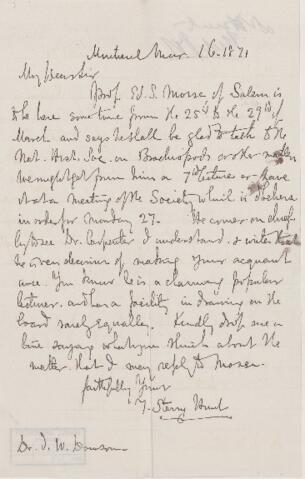 Montreal Mar. 16. 1871
My Dear Sir
Prof. Ed. S. Morse of Salem is
to be here some time from the 25th to the 29th of
March and says he shall be glad to talk to the
Nat. Hist. Soc. on Brachiopods or other matter
we might get from him a lecture or have
at a meeting of the Society which is
in order for Monday 27. He comes on chiefly
to see Dr. Carpenter I understand, & writes that
he is even desirous of making your acquaint
ance. You know he is a charming popular
lecturer, and has a facility in drawing on the
board rarely equalled. Kindly drop me a
line saying what you think about the
matter that I may reply to Morse.
faithfully Yours
T. Sterry Hunt
Dr. J. W. Dawson